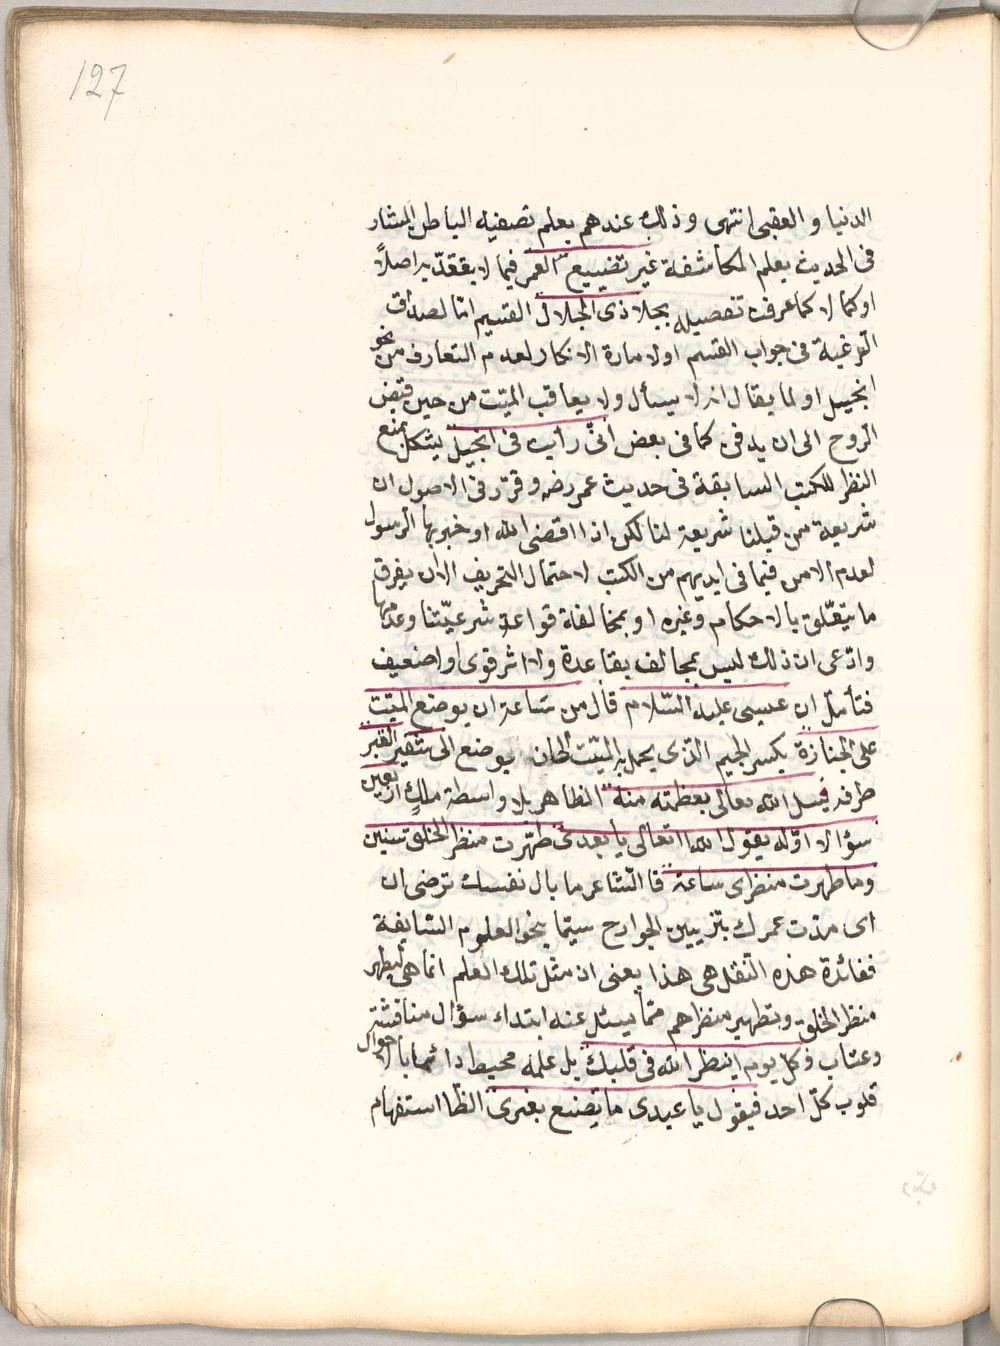 127
الدنيا و العقبى انتهى و ذلك عندهم بعلم تصفيه الباطن المشار
فى الحديث بعلم المكاشفة غير تضييع العمر فيما لا يعتد به اصلاً
او كمالا كما عرفت تفصيله بجلا ذى الجلال القسيم اما لصداق
الرغبة فى جواب القسم او لامارة الانكار لعدم التعارف من نحو
انجيل او لما يقال انه لا يسأل ولا يعاقب الميّت من حين قبض
الروح الى ان يدفن كما فى بعض انّى رأيت فى انجيل يشكل بمنع
النظر للكتب السابقة فى حديث عمر رضه و قرّر فى الاصول ان
شريعة من قبلنا شريعة لنا لكن اذا اقتضى الله او خبر بها الرسول
لعدم الامن فيما فى ايديهم من الكتب لاحتمال التحريف الا ان يفرق
ما يتعلّق بالاحكام وغيره او بمخالفة قواعد شرعيّتنا وعدمها
وادّعى ان ذلك ليس بمخالف بقاعدة ولا اثر قوى او ضعيف
فتأمّل ان عيسى عليه السّلام قال من ساعة ان يوضع الميّت
على الجنازة بكسر الجيم الذى يحمل به الميّت الى ان يوضع الى شفير القبر
طرفه فيسل الله تعالى بعظمته منه الظاهر بلا واسطة ملكٍ اربعين
سؤالا اوّله يقول الله تعالى يا عبدى طهّرت منظر الخلق سنين
وما طهرت منظرى ساعة قال الشاعر ما بال نفسك ترضى ان
اى مدّت عمرك بتزيين الجوارح سيّما بنحو العلوم السّابقة
ففائدة هذه النقل هى هذا يعنى ان مثل تلك العلم انما هى لتطهر
منظر الخلق وبتطهير منظراهم ممّا يسئل عنه ابتداء سؤال مناقشة
وعتاب وكل يوم ينظر الله فى قلبك بل علمه محيط دائما باحوال
قلوب كلّ احد فيقول يا عبدى ما تصنع بغيرى الظا استفهام